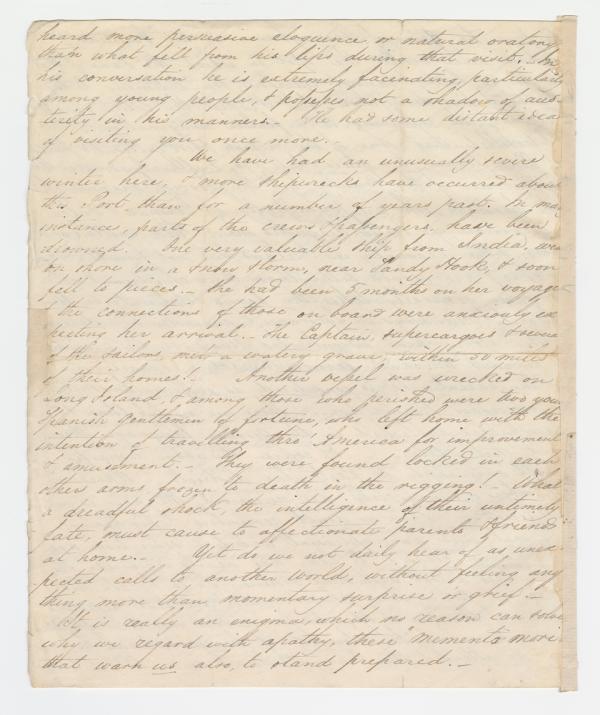 heard more persuasive eloquence or natural oratory
than what fell from his lips during that visit. – In
his conversation he is extremely facinating, particularly
among young people, & possesses not a shadow of aus-
terity in his manners. – He had some distant idea
of visiting you once more. –
We have had an unusually severe
winter here, & more shipwrecks have occurred about
this Port, than for a number of years past. In many
instances, parts of the crews & passengers, have been
drowned. One very valuable ship from India, was
on shore in a snow storm, near Sandy Hook, & soon
fell to pieces. – She had been 5 months on her voyage
& the connections of those on board were anxiously ex
pecting her arrival. – The Captain, supercargoes & several
of the sailors, met a watery grave, within 50 miles
of their homes! Another vessel was wrecked on
Long Island, & among those who perished were two youn
Spanish Gentlemen of fortune, who left home with the
intention of travelling thro' America for improvement
& amusement. – They were found locked in each
other arms frozen to death in the rigging! – What
a dreadful shock, the intelligence of their untimely
fate, must cause to affectionate parents & friends
at home. – Yet do we not daily hear of as unex-
pected calls to another world, without feeling any
thing more than momentary surprise or grief. –
It is really an enigma, which no reason can solve
why we regard with apathy, these memento mori
that warn us also, to stand prepared. –